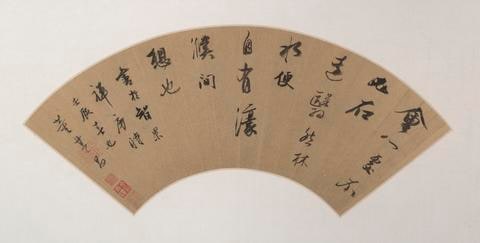 會心處不
必在
遠翳然林
水便
自有濠
濮間
想也
書於智果
禪房
壬辰
董其昌